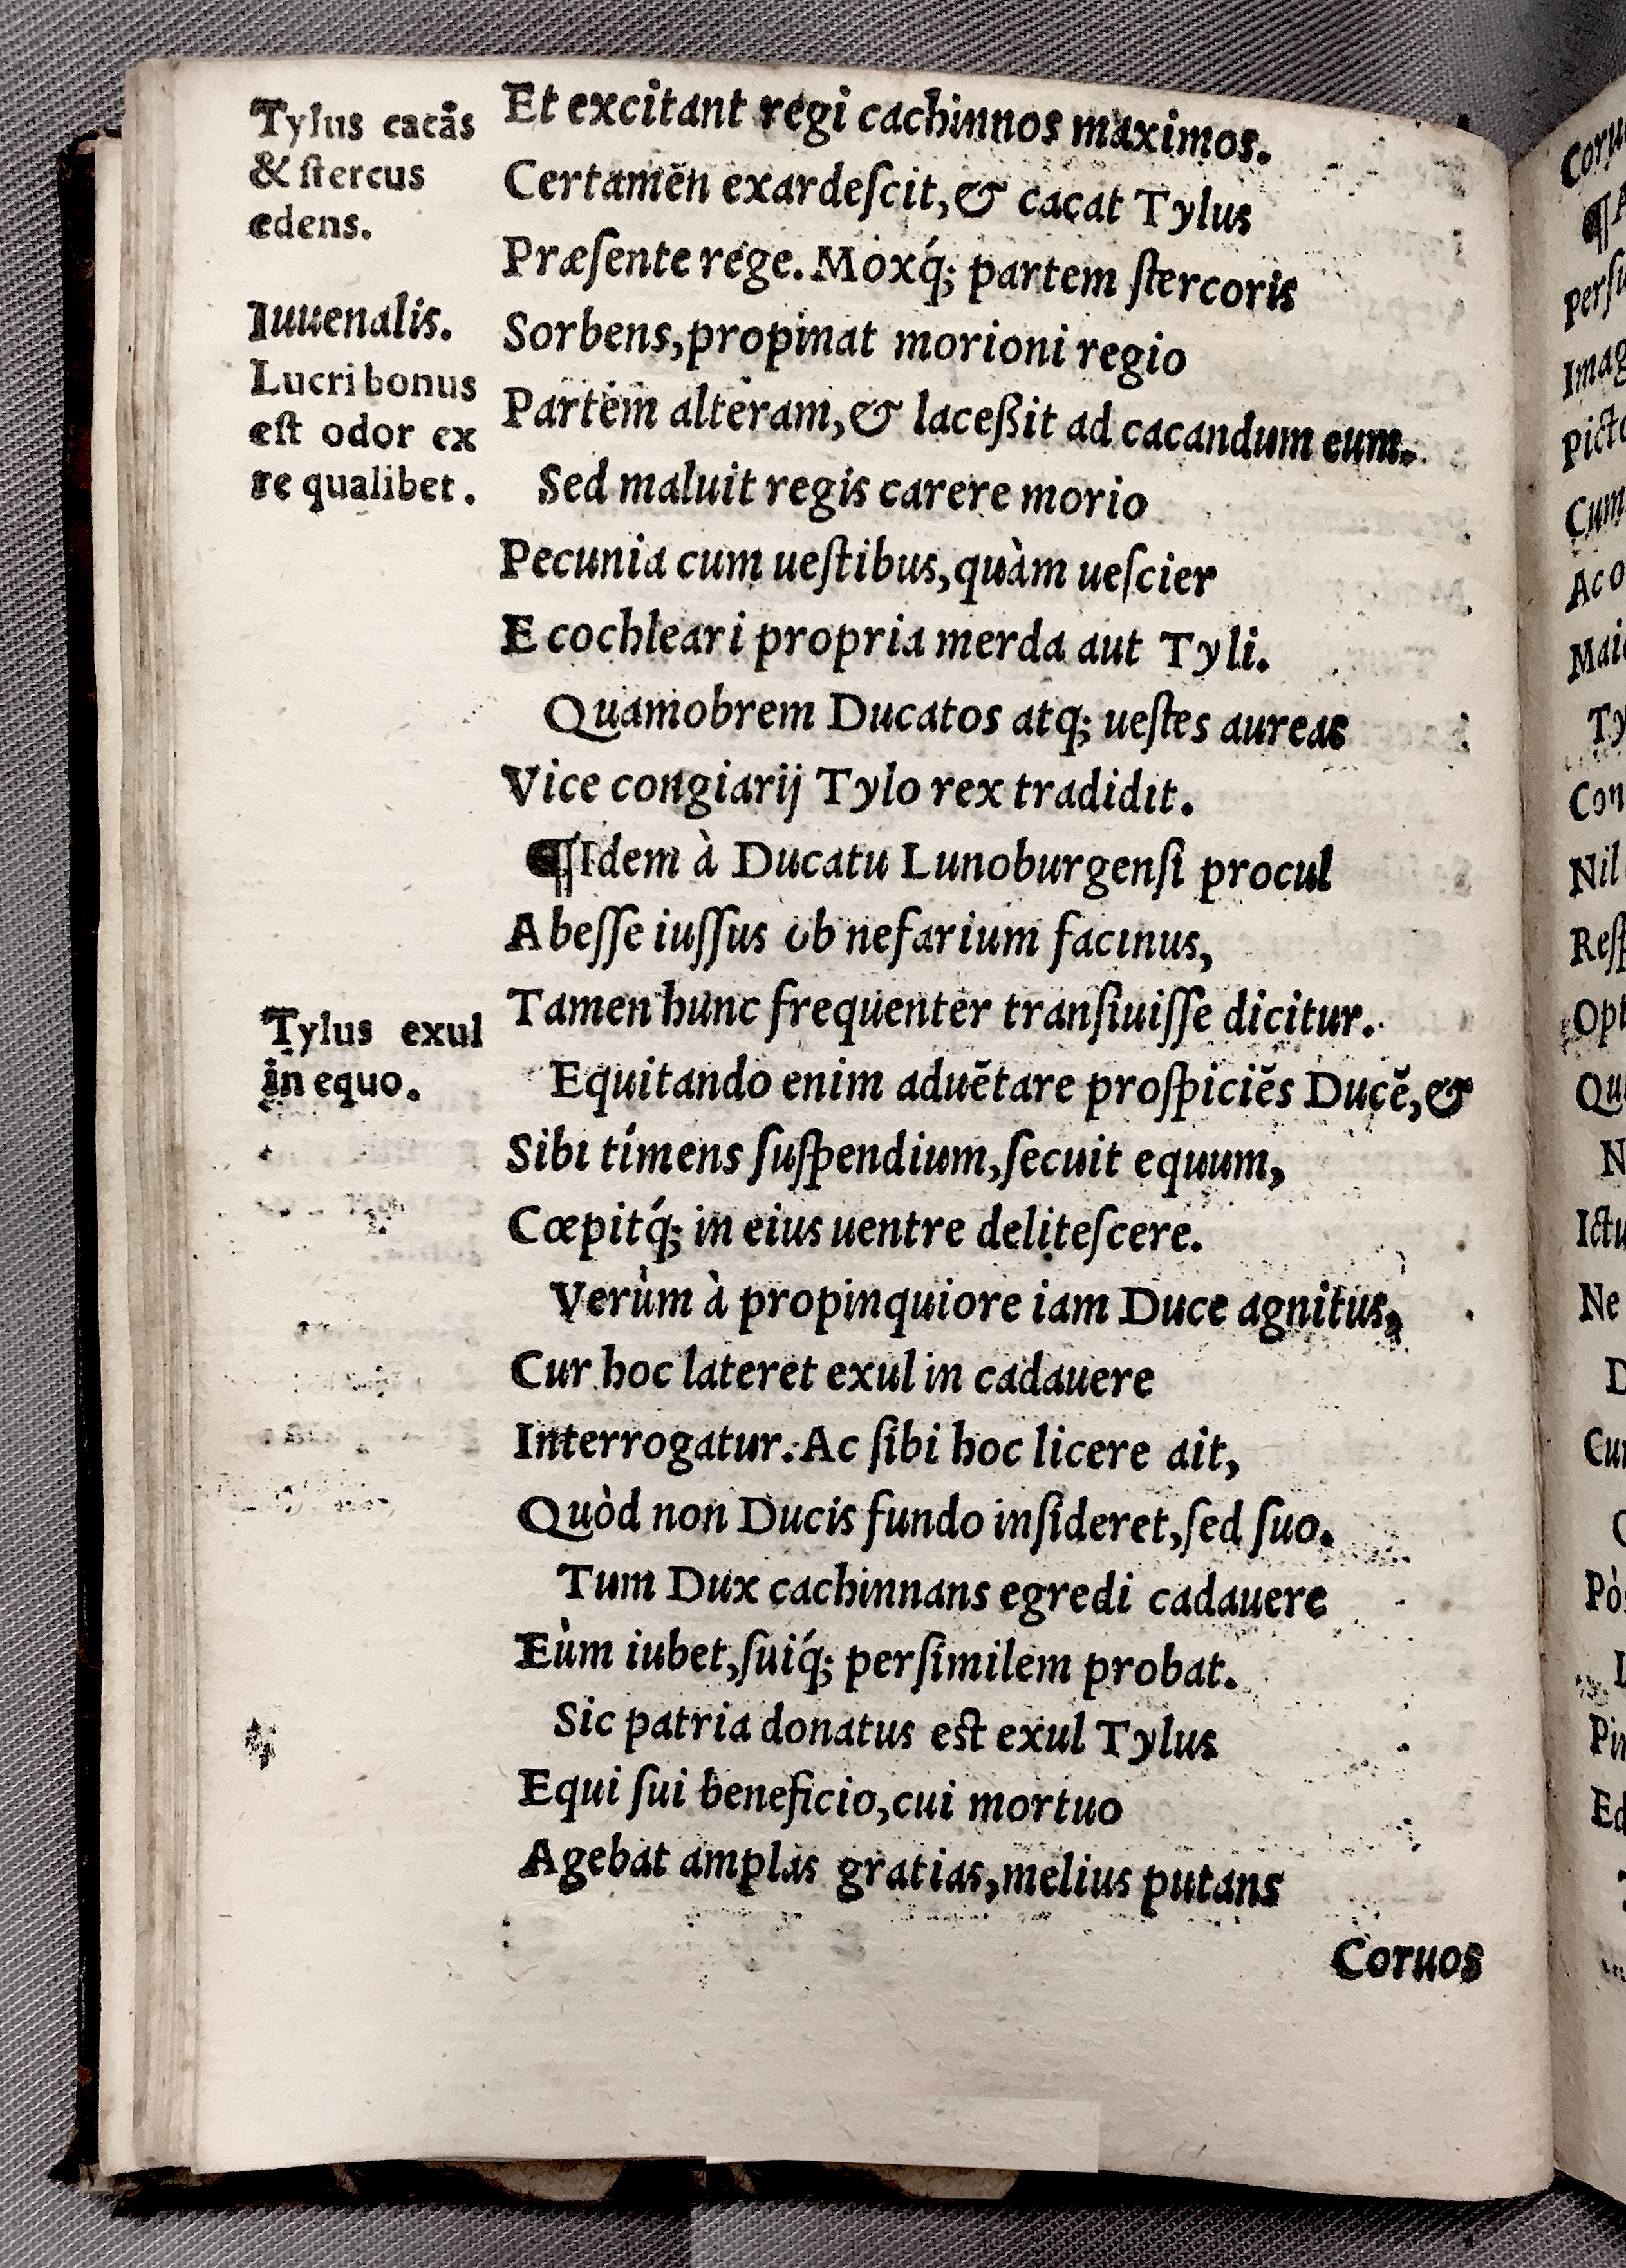 Tylus cacãs
& ſtercus
edens.
Iuuenalis.
Lucri bonus
eſt odor ex
re qualibet.
Tylus exul
in equo.
Et excitant regi cachinnos maximos.
Certamẽn exardeſcit, & cacat Tylus
Præſente rege. Moxq́; partem ſtercoris
Sorbens, propinat morioni regio
Partem alteram, & laceßit ad cacandum eum.
Sed maluit regis carere morio
Pecunia cum ueſtibus, quàm ueſcier
E cochleari propria merda aut Tyli.
Quamobrem Ducatos atq; ueſtes aureas
Vice congiarij Tylo rex tradidit.
¶Idem à Ducatu Lunoburgenſi procul
Abeſſe iuſſus ob nefarium facinus,
Tamen hunc frequenter tranſiuiſſe dicitur.
Equitando enim aduẽtare proſpiciẽs Ducẽ, &
Sibi timens ſuſpendium, ſecuit equum,
Cœpitq́; in eius uentre deliteſcere.
Verùm à propinquiore iam Duce agnitus,
Cur hoc lateret exul in cadauere
Interrogatur. Ac ſibi hoc licere ait,
Quòd non Ducis fundo inſideret, ſed ſuo.
Tum Dux cachinnans egredi cadauere
Eùm iubet, ſuiq́; perſimilem probat.
Sic patria donatus eſt exul Tylus
Equi ſui beneficio, cui mortuo
Agebat amplas gratias, melius putans
Coruos
¶
Imag
Cum
Ty
Con
Nil
Ne